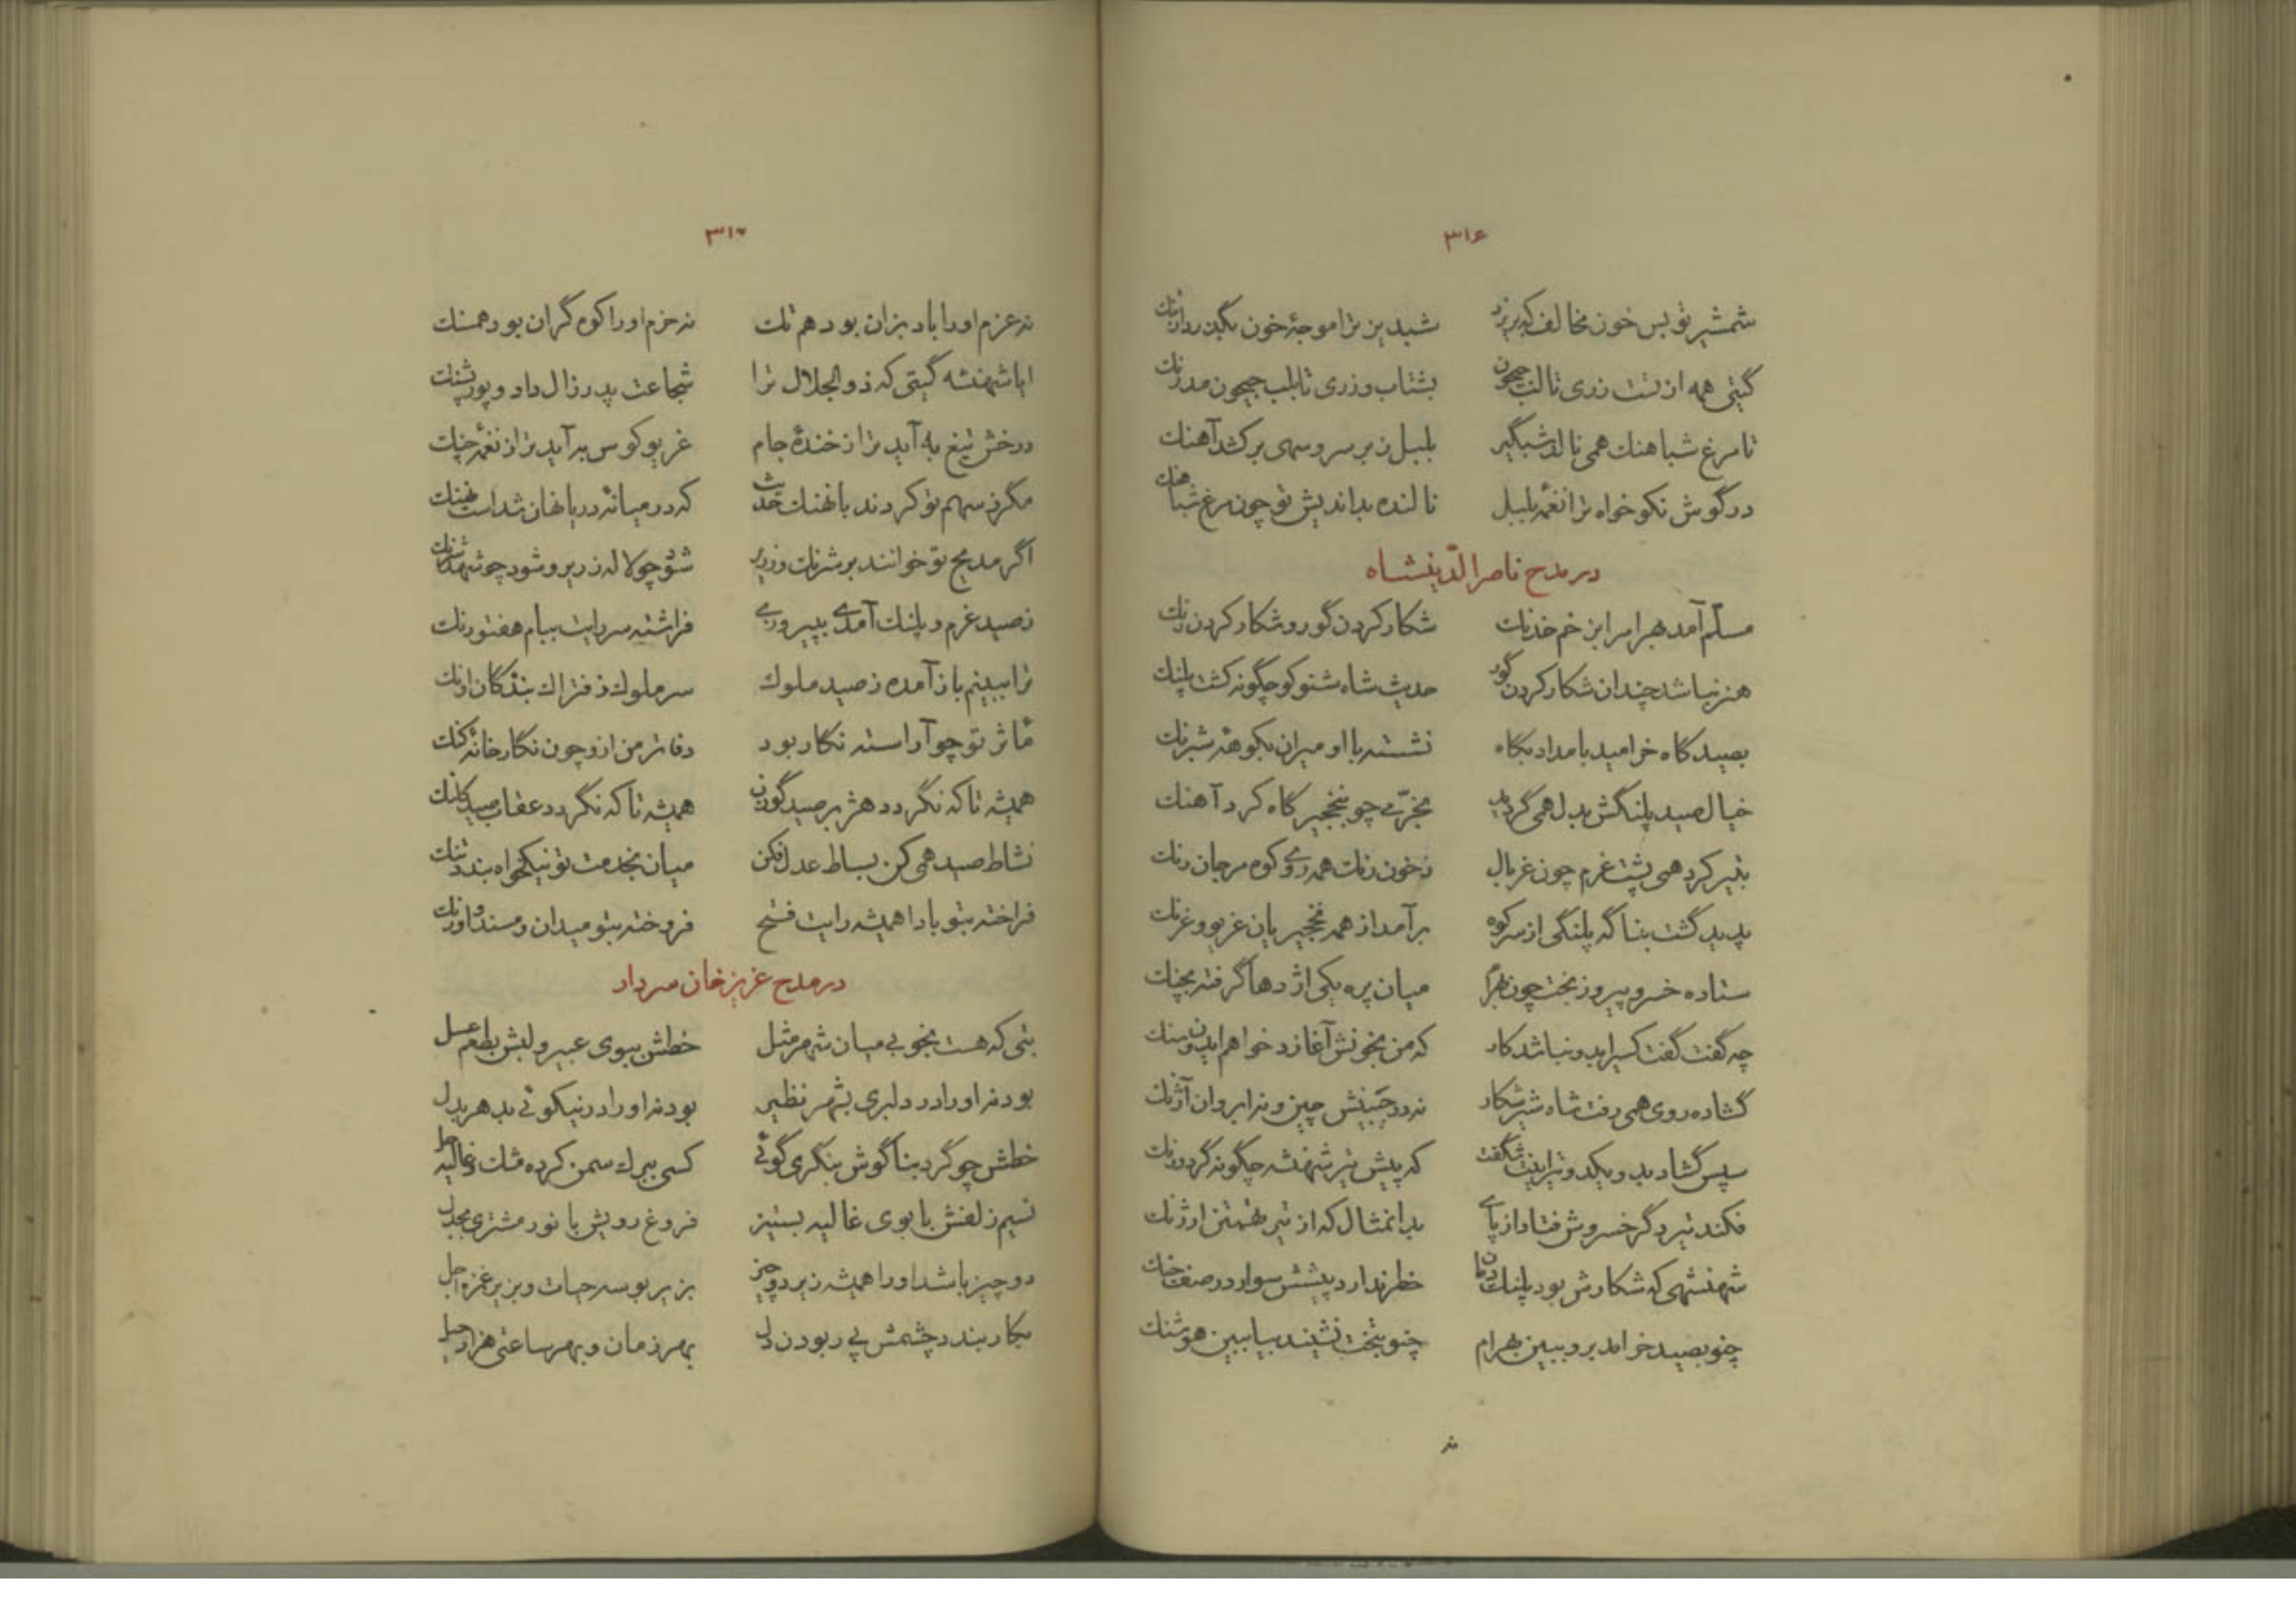 ۳۱۶
شمشیر تو بس خون مخالف که بریزد شبدیز ترا موجهٔ خون بگیرد رنك
گیتی همه از تست زری تا لب جیحون بشتاب و زری تا بلب جیحون مدرنك
تا مرغ شباهنك همی نالد شبگیر بلبل زبر سرو سهی برکشد آهنك
در گوش نکو خواه ترا نغمهٔ بلبل نالنده بداندیش تو چون مرغ شباهنك
در مدح ناصرالدّینشاه
مسلّم آمد بهرام را بزخم خدنك شکار کردن گور و شکار کردن رنك
هنر نباشد چندان شکار کردن گور حدیث شاه شنو کو چگونه کشت پلنك
بصیدگاه خرامید بامداد بگاه نشسته با او میران بکوههٔ شبرنك
خیال صید پلنگش بدل همی گردید بخرّمی چو بنخجیرگاه کرد آهنك
بتیر کرد همی پشت غرم چون غربال زخون رنك همه روی کوه مرجان رنك
پدید گشت بناگه پلنگی از سر کوه برآمد از همه نخجیریان غریو و غرنك
ستاده خسرو پیروز بخت چون میان پره یکی اژدها گرفته بچنك
چه گفت گفت کسیرا بدو نباشد کار که من بخونش آغازد خواهم ایدون سنك
گشاده روی همی رفت شاه شیر شکار نه در جَبینش چین و نه ابروان آژنك
سپس گشاد بدو یکدو تیر اینت شگفت که پیش تیر شهنشه چگونه کرد درنك
فکند تیر دگر خسروش فتاد از پای بدانمثال که از تیر تهمتن ارژنك
شهنشهی که شکارش بود پلنك دمان خطر ندارد پیشش سوار در صف جنك
چنو بصید خرامد برو ببین بهرام چنو بتخت نشیند بیا ببین هوشنك
۳۱۷
نه عزم اورا باد بزان بود هم تك نه حزم اورا کوه گران بود همسنك
ایا شهنشه گیتی که ذوالجلال ترا شجاعت پدر زال داد و پور پشنك
درخش تیغ به آید ترا ز خندهٔ جام غریو کوس به آید ترا ز نغمهٔ چنك
مگر ز سهم تو کردند با نهنك حدیث که در میانهٔ دریا نهان شداست نهنك
اگر مدیح تو خوانند بر شرنك و زریر شود چو لاله زریر و شود چو شهد شرنك
ز صید غرم و پلنك آمدی بپیروزی فراشته سر رایت ببام هفتورنك
ترا ببینم باز آمده ز صید ملوك سر ملوك ز فتراك بندگان آونك
مآثر تو چو آراسته نگار بود دفاتر من ازو چون نگار خانهٔ کنك
همیشه تا که نگردد هژبر صید گوزن همیشه تا که نگردد عقاب صید کلنك
نشاط صید همی کن بساط عدل افکن میان بخدمت تو نیکخواه بندد تنك
فراخته بتو بادا همیشه رایت فتح فروخته بتو میدان و مسند و اورنك
در مدح عزیز خان سردار
بتی که هست بخوبی میان شهر مثل خطش ببوی عبیر و لبش بطعم عسل
بود نه اورا در دلبری بشهر نظیر بود نه اورا در نیکوئی بدهر بدل
خطش چو گرد بناگوش بنگری گوئی کسی ببرك سمن کرده مشك و غالیه حل
نسیم زلفش با بوی غالیه بستیز فروغ رویش با نور مشتری بجدل
دو چیز باشد اورا همیشه زیر دو چیز بزیر بوسه حیات و بزیر غمزه اجل
بکار بندد چشمش پی ربودن دل بهر زمان و بهر ساعتی هزار حیل